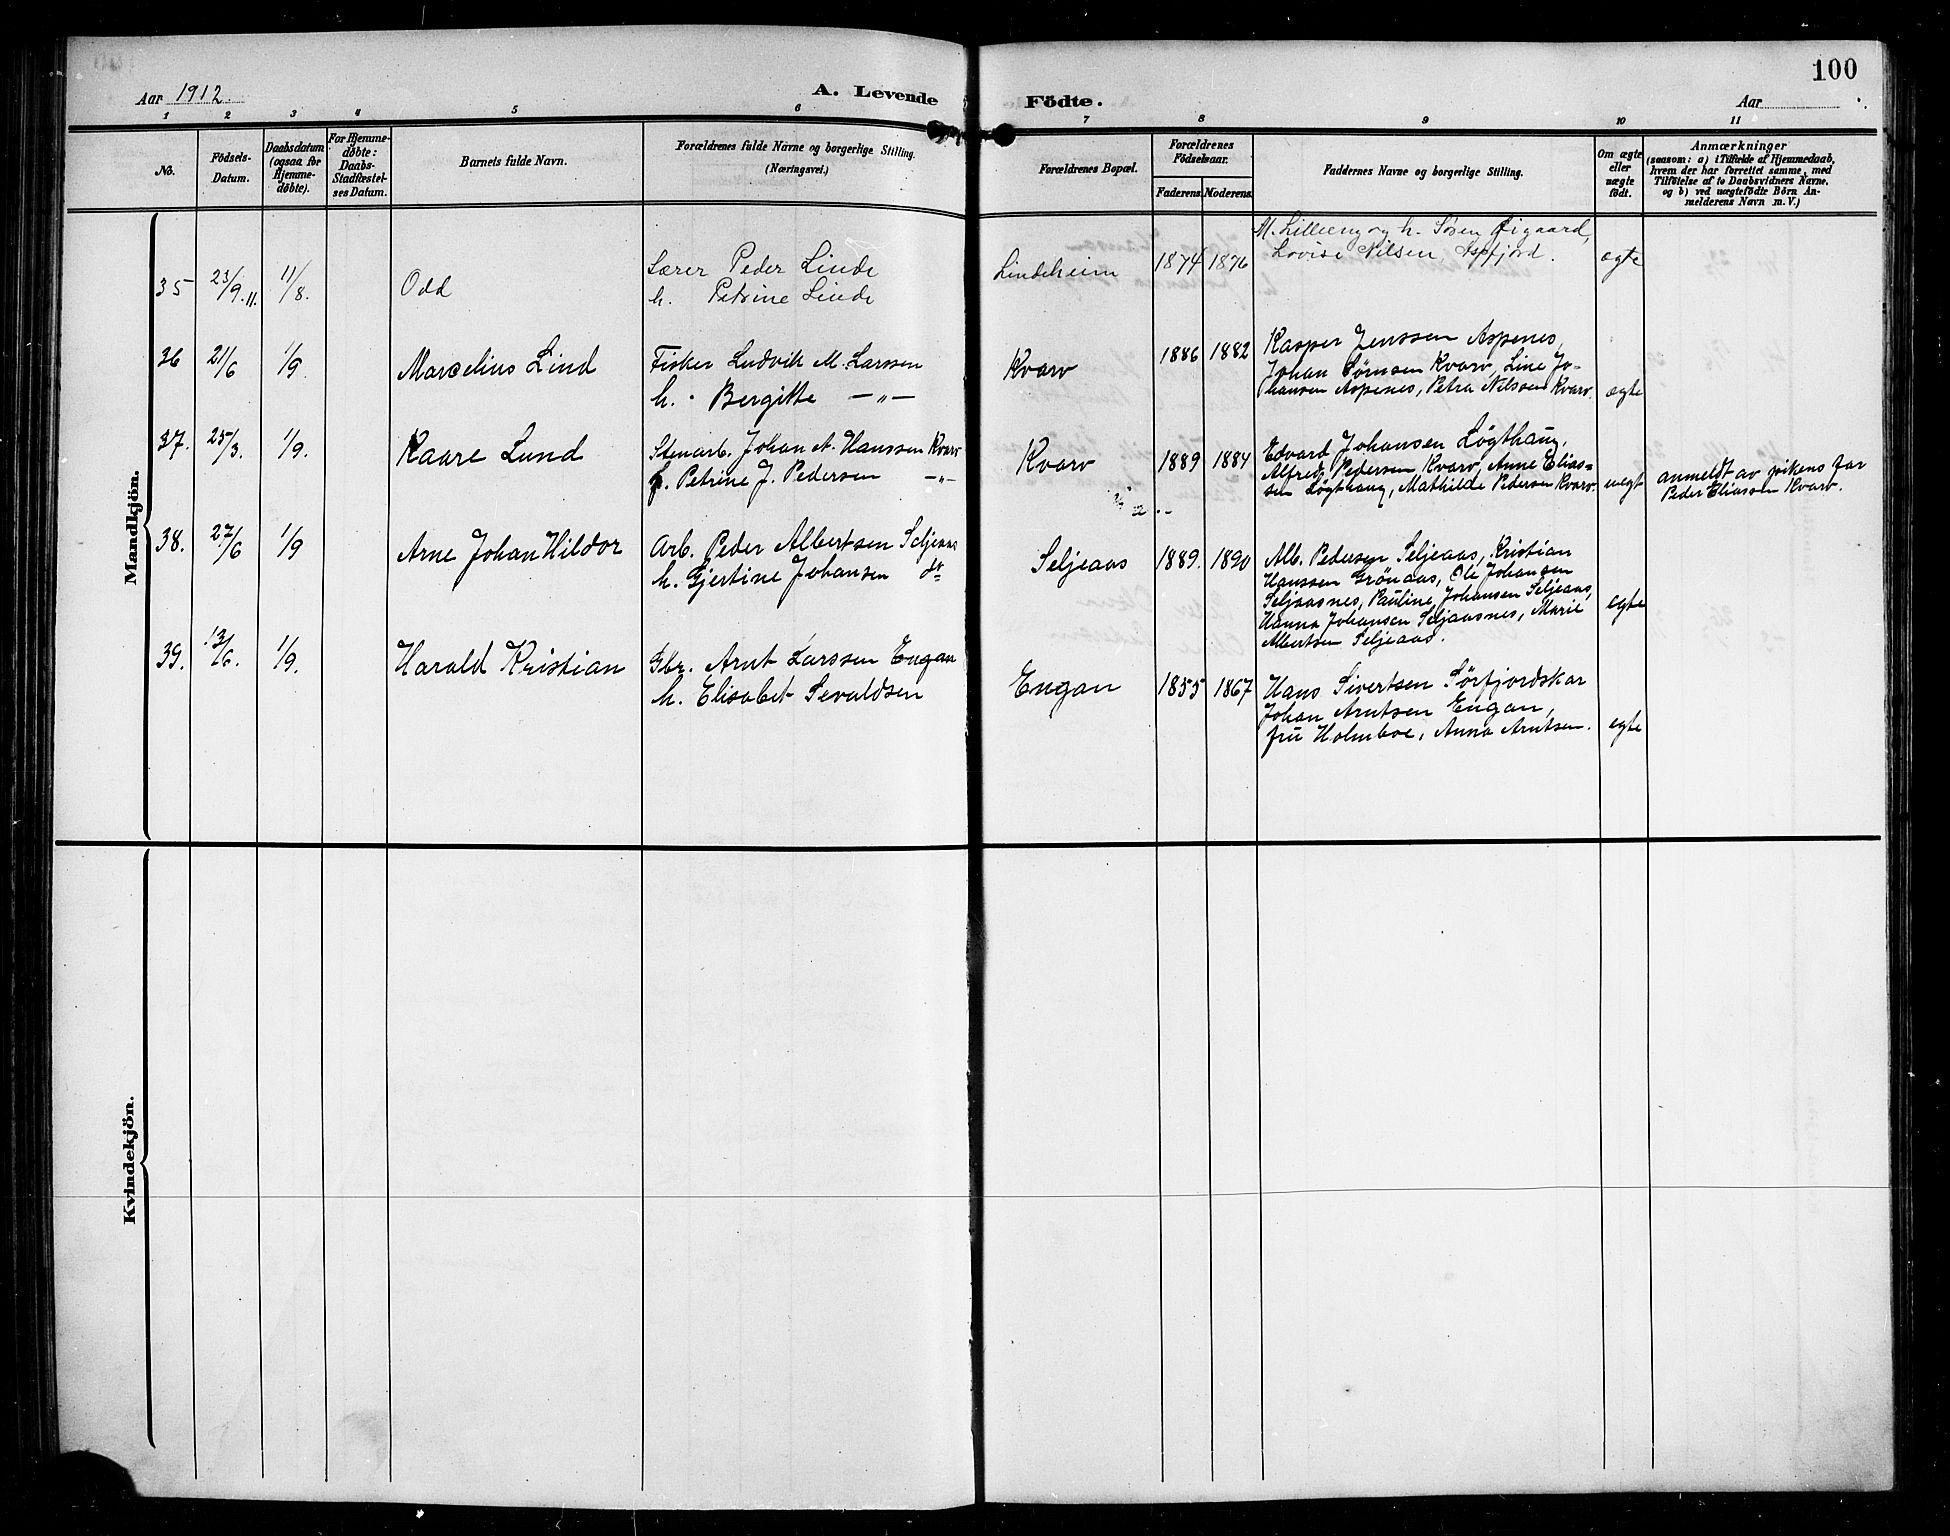 100
Aar 1912.
A. Levende
Födte.
Aar
1 2 3 4 5 6 7 8 9 10 11
No.
Födsels-
Datum.
Daabsdatum
(ogsaa for
Hjemme-
døbte).
For Hjemme-
døbte:
Daabs-
Stadfæstel-
ses Datum.
Barnets fulde Navn.
Forældrenes fulde Navne og borgerlige Stilling.
(Næringsvei.)
Forældrenes Bopæl.
Forældrenes
Födselsaar.
Faderens.
Moderens.
Faddernes Navne og borgerlige Stilling.
Om ægte
eller
uægte
födt.
Anmærkninger
(saasom: a) i Tilfælde af Hjemmedaab,
hvem der har forrettet samme, med
Tilföielse af to Daabsvidners Navne,
og b) ved uægtefödte Börn An-
melderens Navn m. V.)
Mandkjön.
35 23/9.11. 11/8. Odd
Lærer Peder Linde
h. Petrine Linde
Lindeheim 1874 1876
M. Lilleeng og h. Sören Øigaard,
Lovise Nilsen, Aspfjord.
ægte
36 21/6 1/9. Marcelius Lind
Fisker Ludvik M. Larssen
h. Bergitte —"—
Kvarv 1886 1882
Kasper Jenssen Aspenes,
Johan Sörnsen Kvarv, Line Jo-
hansen Aspenes, Petra Nilssen Kvarv.
ægte
37. 25/3. 1/9. Kaare Lund
Stenarb. Johan A. Hanssen Kvarv
p. Petrine J. Pedersen —"—
Kvarv 1889 1884
Edvard Johansen Løgthaug,
Alfred Pedersen Kvarv, Anne Elias-
sen Løgthaug, Mathilde Pedersen Kvarv.
uegt
anmeldt av pikens far
Peder Eliassen Kvarv.
38. 27/6 1/9 Arne Johan Hildor
Arb. Peder Albertsen Seljeaas
h. Gjertine Johansen dt
Seljeaas 1889. 1890
Alb. Pedersen Seljeaas, Kristian
Hanssen Grönaas, Ole Johansen
Seljaasnes, Pauline Johansen Seljeaas,
Hanna Johansen Seljaasnes, Marie
Albertsen Seljeaas.
egte
39. 13/6. 1/9. Harald Kristian
Gbr. Arnt Larssen Engan
h. Elisabet Sevaldsen
Engan 1855 1867
Hans Sivertsen Sörfjordskar
Johan Arntsen Engan,
fru Holmboe, Anna Arntsen.
egte
Kvindekjön.